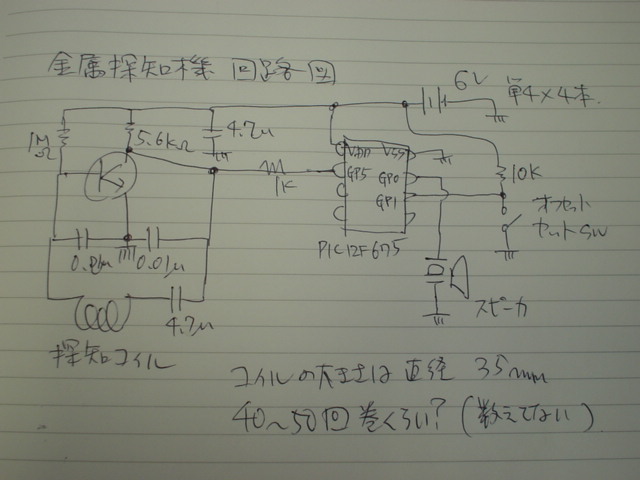 金属探知機 回路図
6V 単4×4本.
1MΩ
5.6kΩ
4.7μ
1K
VDD VSS
GP5 GP0
GP1
10K
オフセット
セットSW
PIC12F675
0.01μ
4.7μ
スピーカ
探知コイル
コイルの大きさは 直径 35mm
40~50回巻くらい?(数えてない)